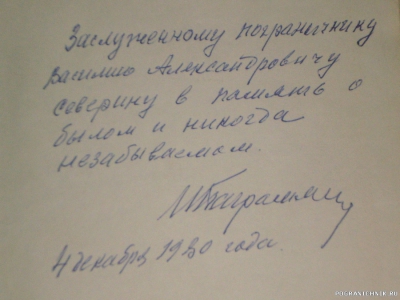 Заслуженному пограничнику
Василию Александровичу
Северину в память о
былом и никогда
незабываемом.
И Баграмян
4 декабря 1980 года.
POGRANICHNIK.RU